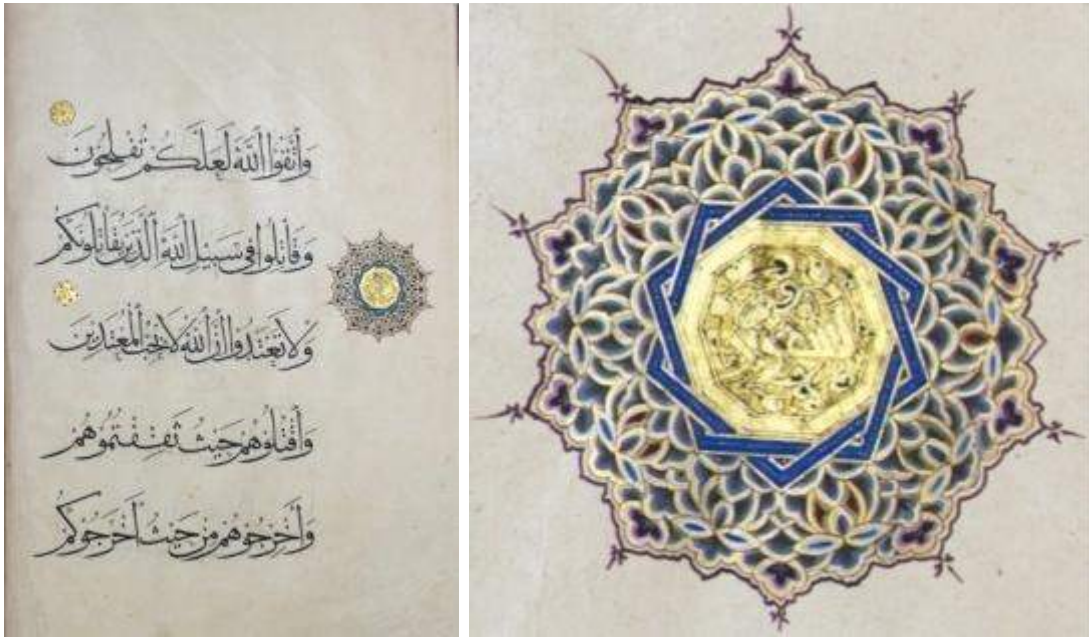 وَاتَّقُوا اللَّهَ لَعَلَّكُمْ تُفْلِحُونَ
وَقَاتِلُوا فِي سَبِيلِ اللَّهِ الَّذِينَ يُقَاتِلُونَكُمْ
وَلَا تَعْتَدُوا إِنَّ اللَّهَ لَا يُحِبُّ الْمُعْتَدِينَ
وَاقْتُلُوهُمْ حَيْثُ ثَقِفْتُمُوهُمْ
وَأَخْرِجُوهُمْ مِنْ حَيْثُ أَخْرَجُوكُمْ